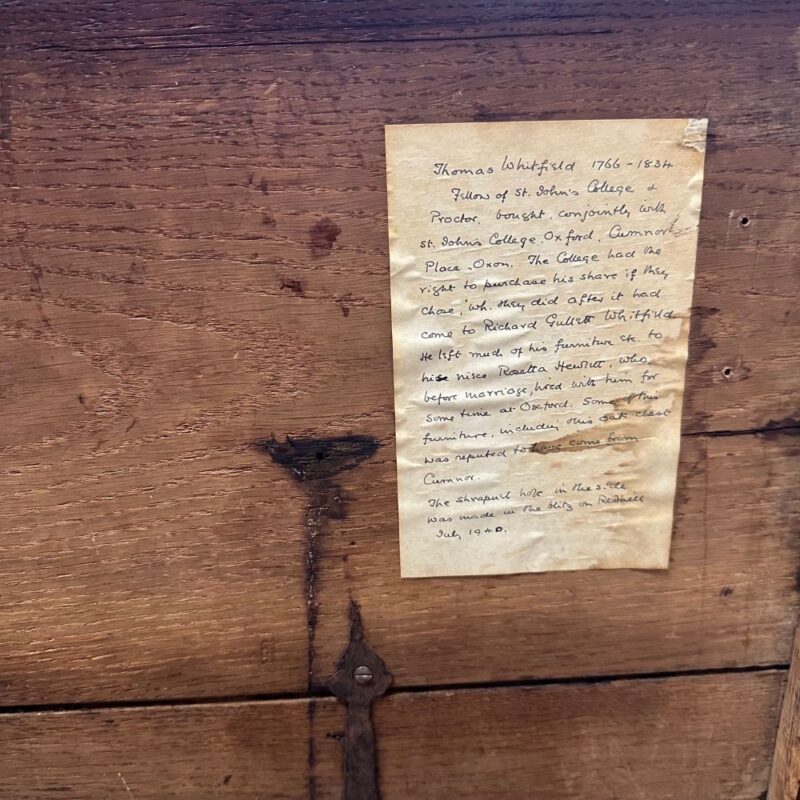 Thomas Whitfield 1766 - 1834
Fellow of St. John's College &
Proctor, bought, conjointly with
St. John's College, Oxford, Cumnor
Place, Oxon. The College had the
right to purchase his share if they
chose, wh. they did after it had
come to Richard Gullett Whitfield.
He left much of his furniture etc. to
his niece Rosetta Hewlett, who,
before marriage, lived with him for
some time at Oxford. Some of this
furniture, including this oak chest
was reputed to have come from
Cumnor.
The shrapnel hole in the side
was made in the blitz on Redhill
July 1940.